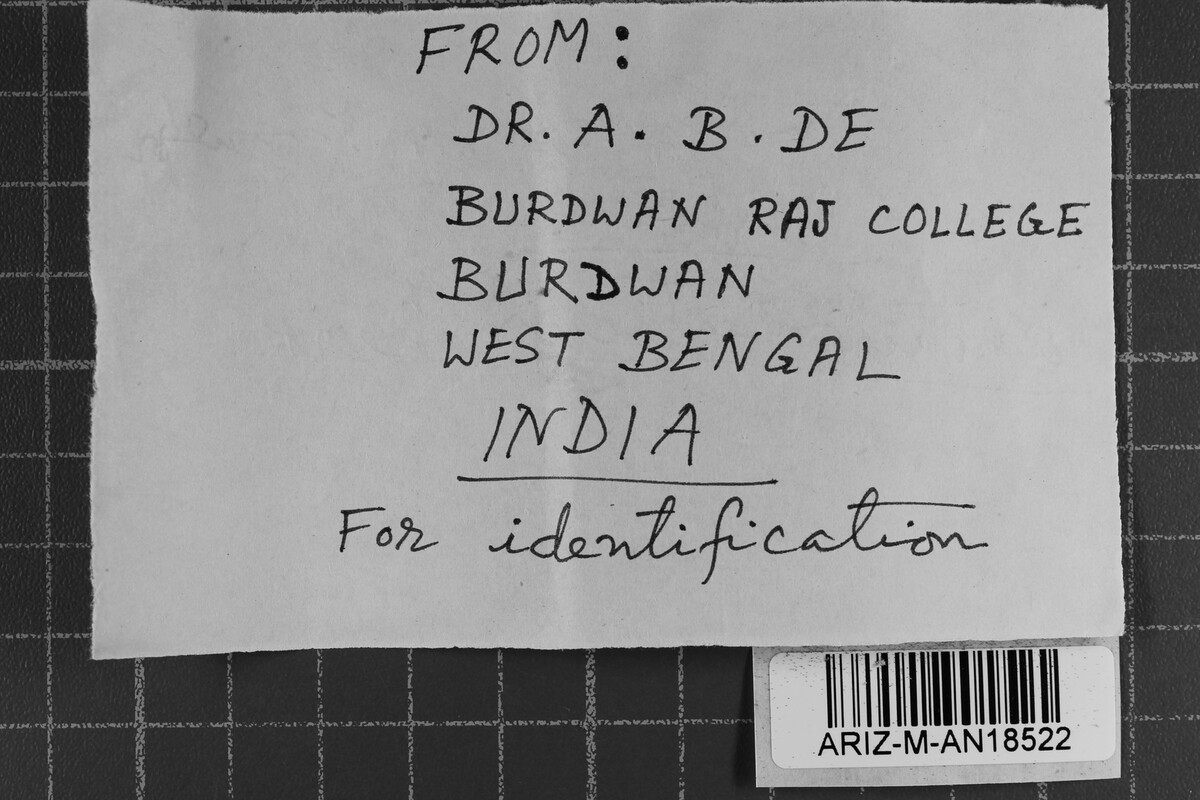 FROM:
DR. A. B. DE
BURDWAN RAJ COLLEGE
BURDWAN
WEST BENGAL
INDIA
For identification
ARIZ-M-AN18522